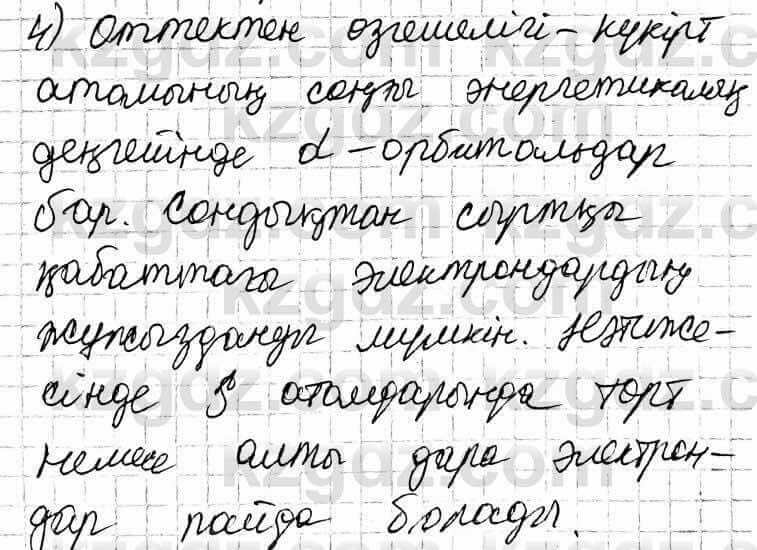 4) Оттектен өзгешелігі – күкірт
атомының соңғы энергетикалық
деңгейінде d – орбитальдар
бар. Сондықтан сыртқы
қабаттағы электрондардың
мүмкін. Нәтиже-
сінде S атомдарында төрт
немесе алты дара электрон-
дар пайда болады.
kzgdz.com